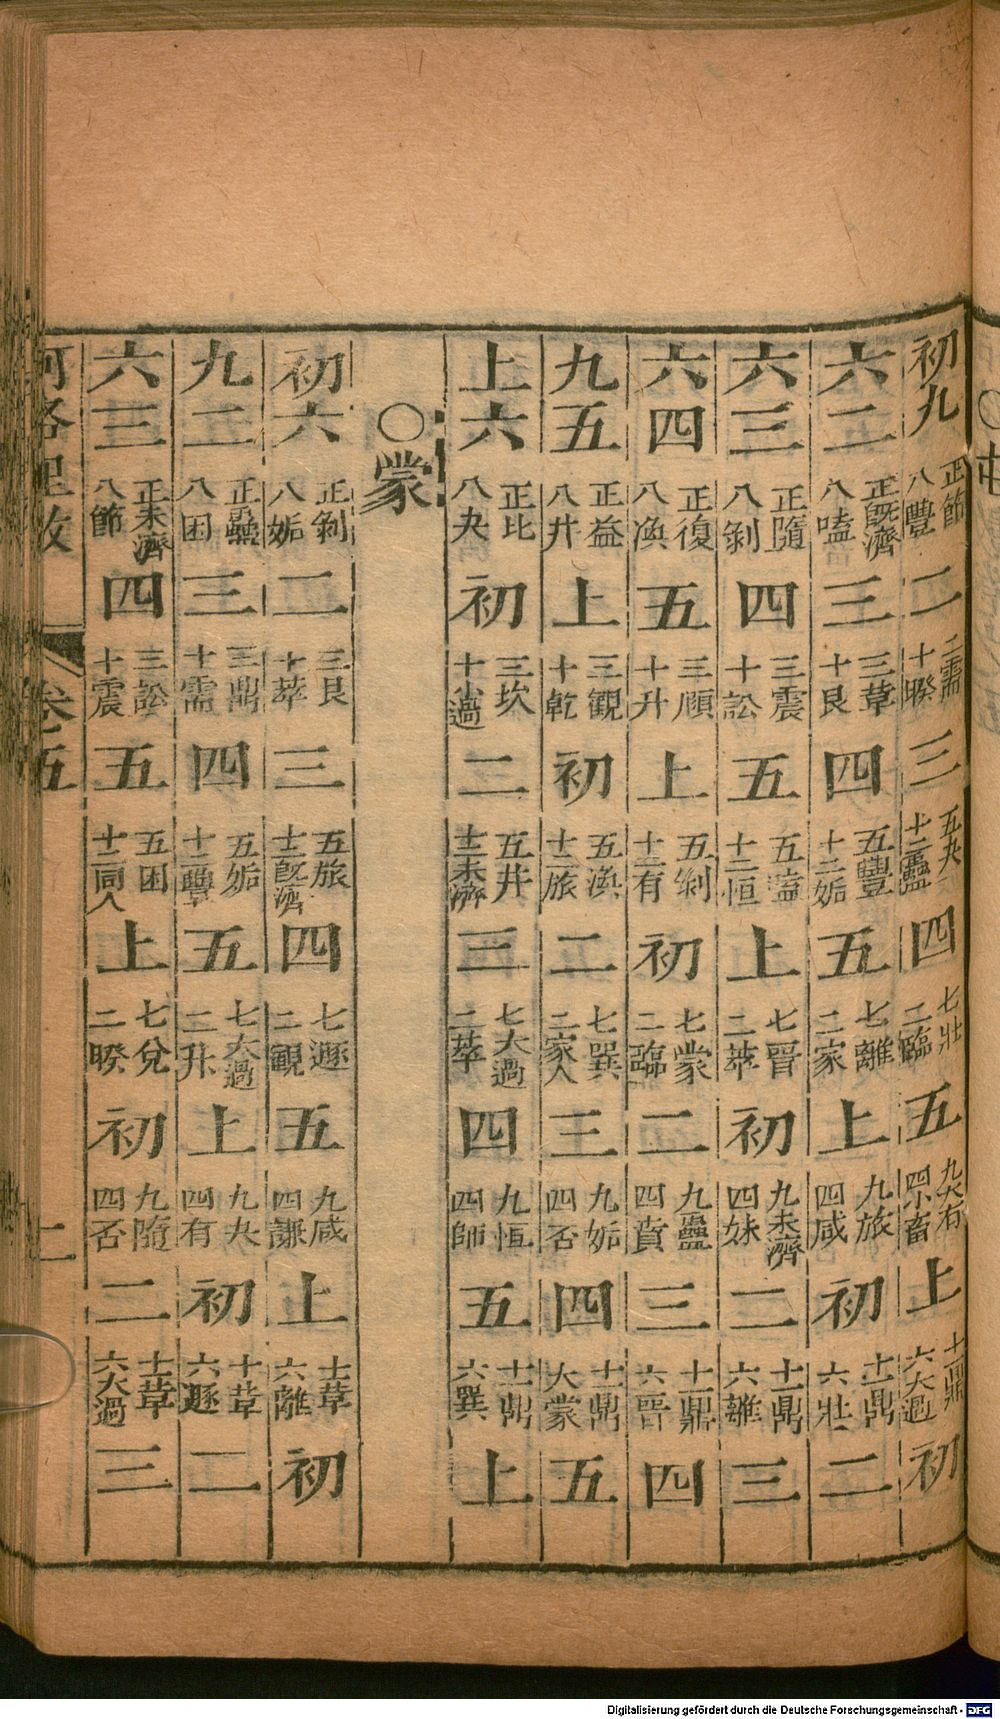 ○屯
初九 正節 八豐 二 三需 十睽 三 五夬 十二蠱 四 七壯 二臨 五 九大有 四小畜 上 十一鼎 六大過 初
六二 正既濟 八嗑 三 三革 十艮 四 五豐 十二姤 五 七離 二家 上 九旅 四咸 初 十一鼎 六壯 二
六三 正隨 八剝 四 三震 十訟 五 五嗑 十二恒 上 七晉 二萃 初 九未濟 四妹 二 十一鼎 六離 三
六四 正復 八渙 五 三頤 十升 上 五剝 十二有 初 七蒙 二臨 二 九蠱 四賁 三 十一鼎 六晉 四
九五 正益 八井 上 三觀 十乾 初 五渙 十二旅 二 七巽 二家人 三 九姤 四否 四 十一鼎 六蒙 五
上六 正比 八夬 初 三坎 十小過 二 五井 十二未濟 三 七大過 二萃 四 九恒 四師 五 十一鼎 六巽 上
○蒙
初六 正剝 八姤 二 三艮 十萃 三 五旅 十二既濟 四 七遯 二觀 五 九咸 四謙 上 十一革 六離 初
九二 正蠱 八困 三 三鼎 十需 四 五姤 十二豐 五 七大過 二升 上 九夬 四有 初 十一革 六遯 二
六三 正未濟 八節 四 三訟 十震 五 五困 十二同人 上 七兌 二睽 初 九隨 四否 二 十一革 六大過 三
河洛理數 卷五 二
Digitalisierung gefördert durch die Deutsche Forschungsgemeinschaft - DFG